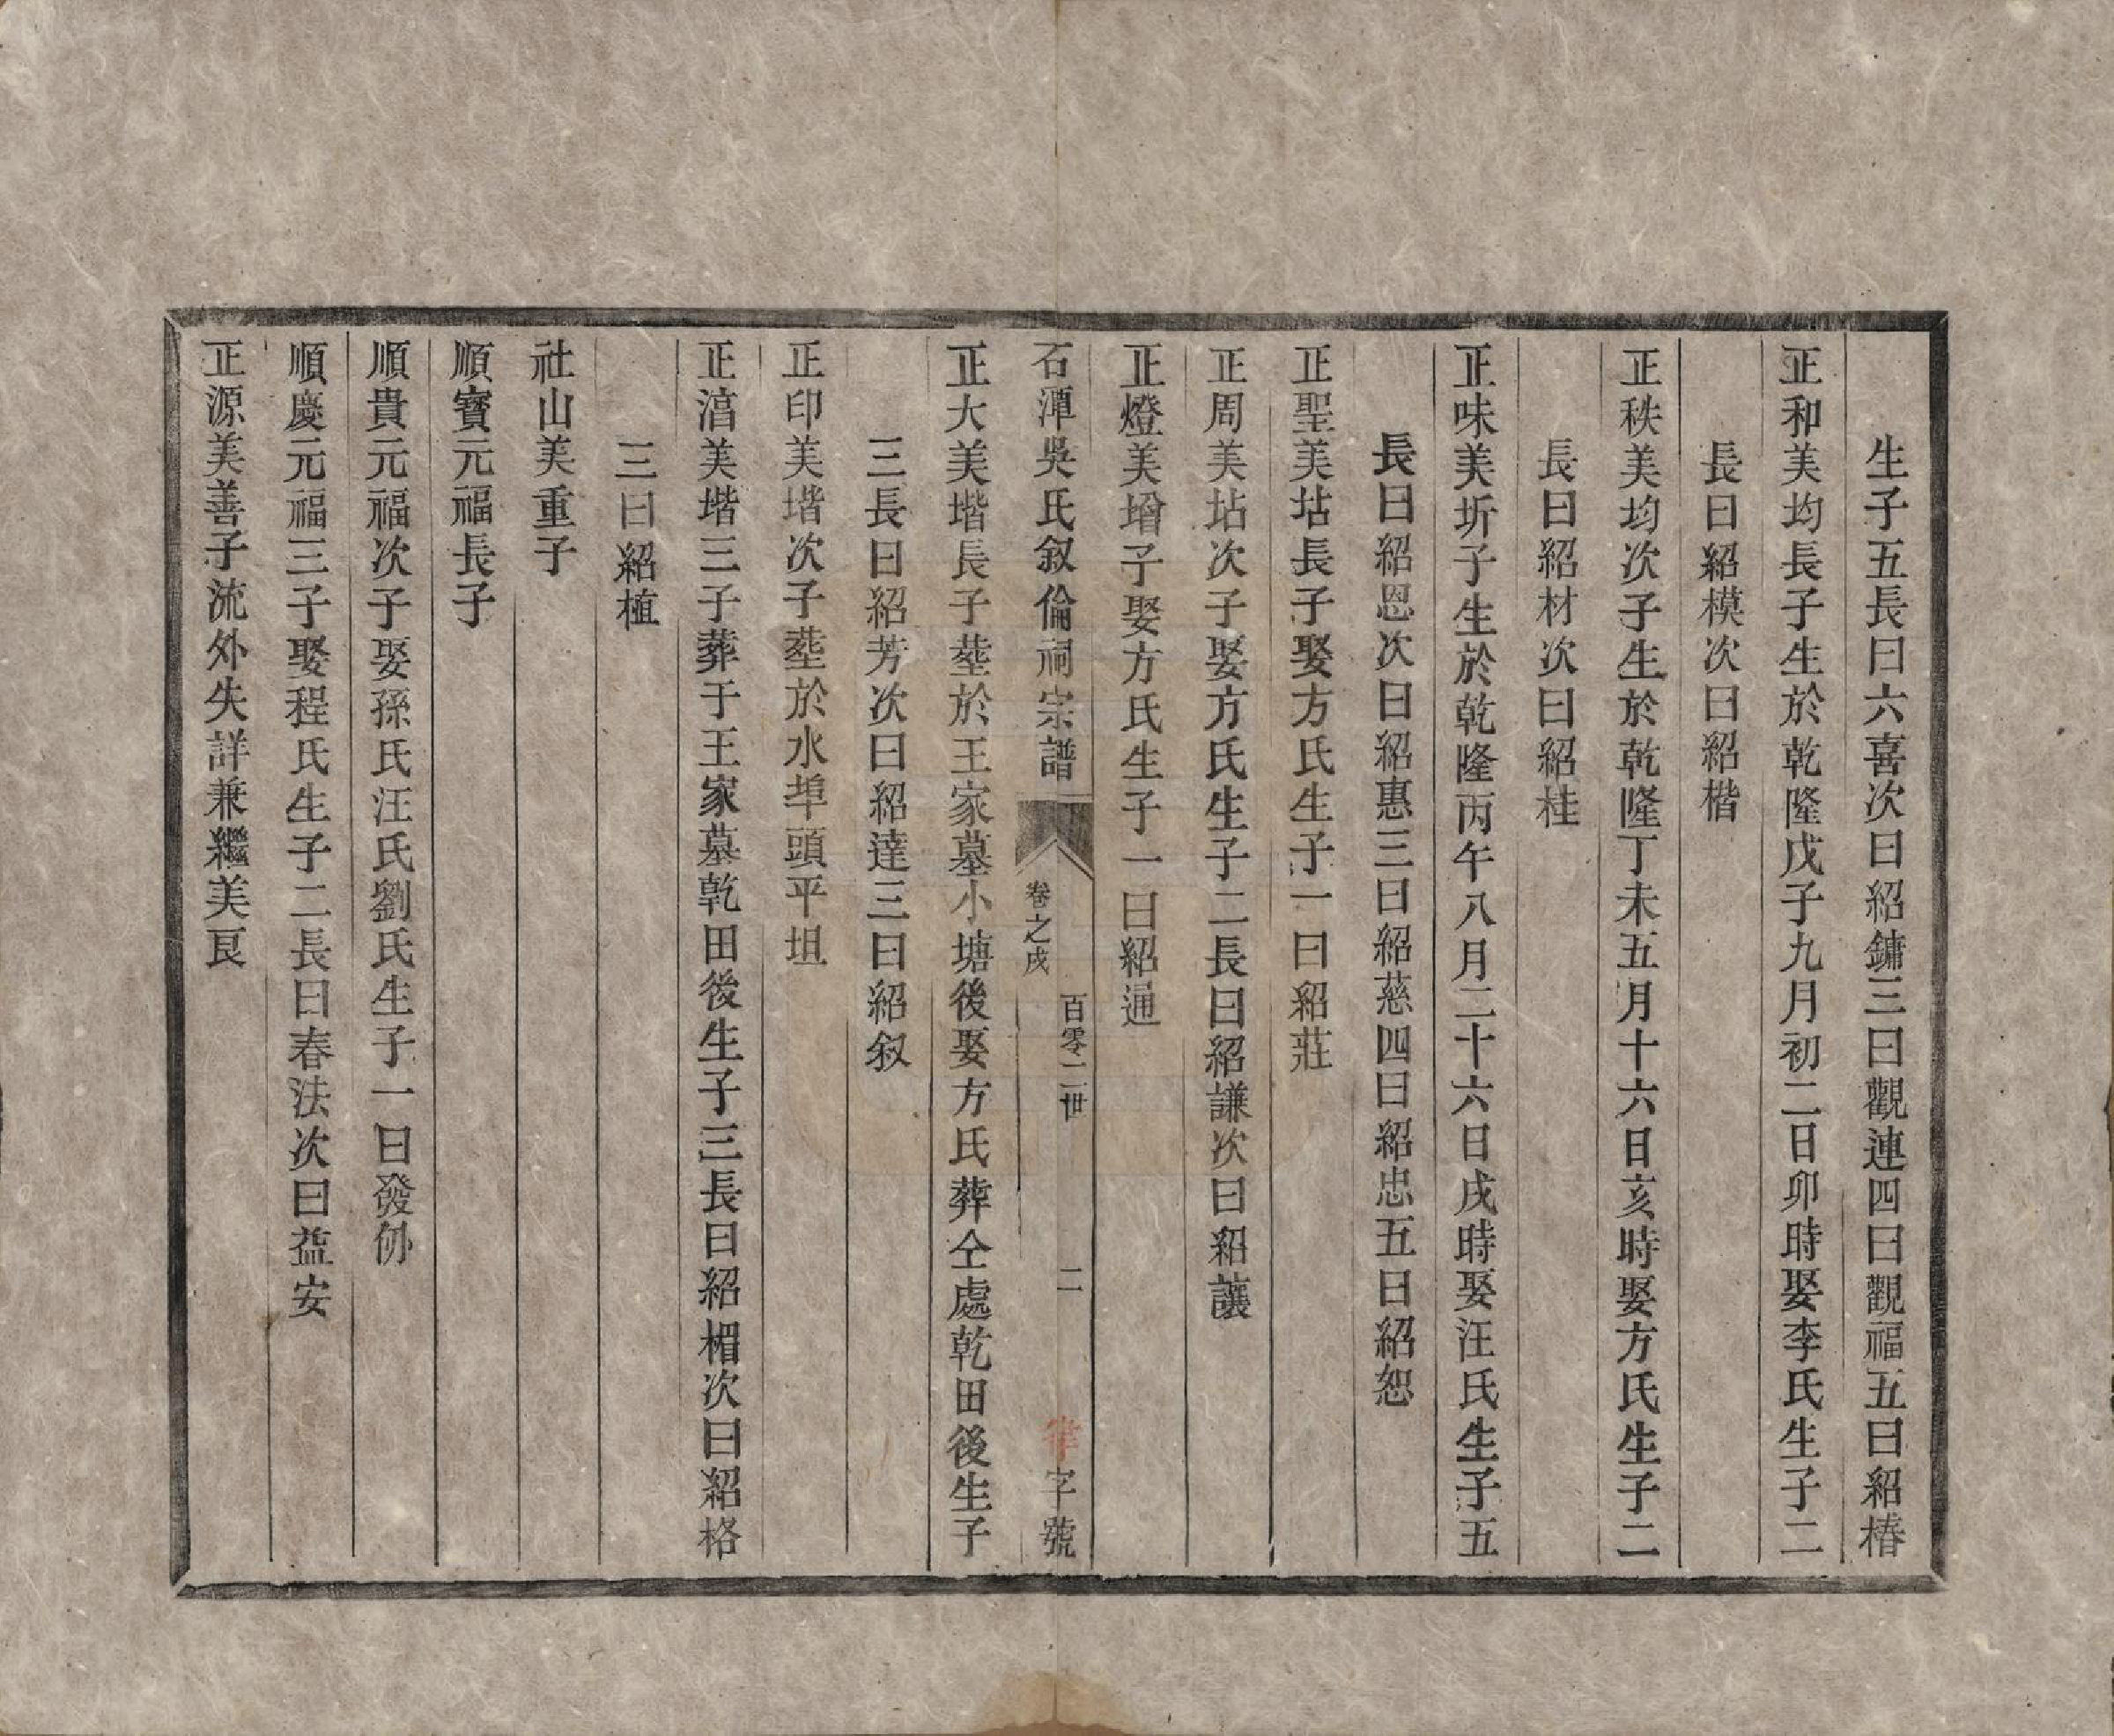 生子五長曰六喜次曰紹鏞三曰觀連四曰觀福五曰紹椿
正和美均長子生於乾隆戊子九月初二日卯時娶李氏生子二
長曰紹模次曰紹楷
正秩美均次子生於乾隆丁未五月十六日亥時娶方氏生子二
長曰紹材次曰紹桂
正味美圻子生於乾隆丙午八月二十六日戌時娶汪氏生子五
長曰紹恩次曰紹惠三曰紹慈四曰紹忠五曰紹恕
正聖美坫長子娶方氏生子一曰紹莊
正周美坫次子娶方氏生子二長曰紹謙次曰紹讓
正燈美增子娶方氏生子一曰紹通
石潭吳氏叙倫祠宗譜
卷之戌
百零二世
二
字號
正大美堦長子塟於王家墓小塘後娶方氏葬仝處乾田後生子
三長曰紹芳次曰紹達三曰紹叙
正印美堦次子塟於水埠頭平坦
正湆美堦三子葬于王家墓乾田後生子三長曰紹楣次曰紹格
三曰紹植
社山美重子
順寳元福長子
順貴元福次子娶孫氏汪氏劉氏生子一曰發
順慶元福三子娶程氏生子二長曰春法次曰益安
正源美善子流外失詳兼繼美艮